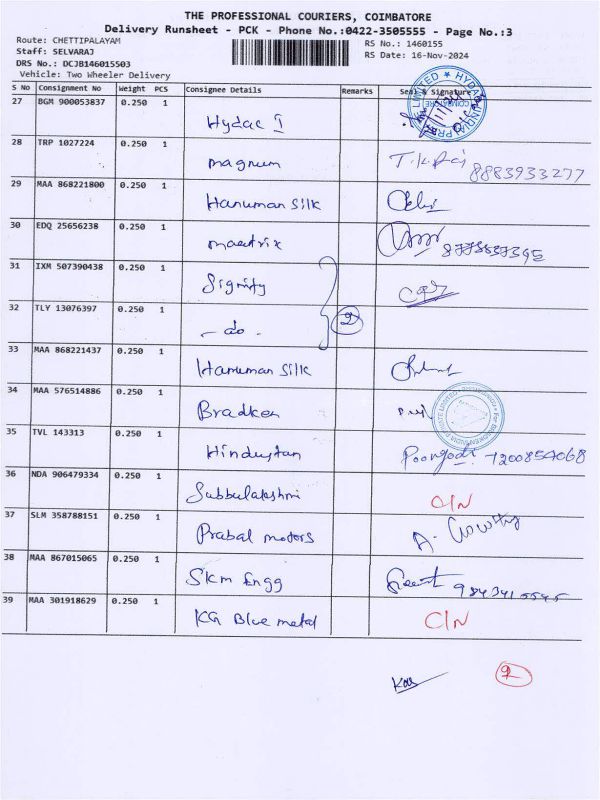 THE PROFESSIONAL COURIERS, COIMBATORE
Delivery Runsheet - PCK - Phone No.:0422-3505555 - Page No.:3
Route: CHETTIPALAYAM RS No.: 1460155
Staff: SELVARAJ RS Date: 16-Nov-2024
DRS No.: DCJB146015503
Vehicle: Two Wheeler Delivery
S No Consignment No Weight PCS Consignee Details Remarks Seal & Signature
27 BGM 900053837 0.250 1 Hydac I
28 TRP 1027224 0.250 1 magnum 8883933277
29 MAA 868221800 0.250 1 Hanuman Silk
30 EDQ 25656238 0.250 1 maetrix
31 IXM 507390438 0.250 1 Signity
32 TLY 13076397 0.250 1 - do - 2
33 MAA 868221437 0.250 1 Hanuman Silk
34 MAA 576514886 0.250 1 Bradken
35 TVL 143313 0.250 1 Hindustan Poongodi 7200854068
36 NDA 906479334 0.250 1 Subbulakshmi C/N
37 SLM 358788151 0.250 1 Prabal motors
38 MAA 867015065 0.250 1 Skm Engg
39 MAA 301918629 0.250 1 KG Blue metal C/N